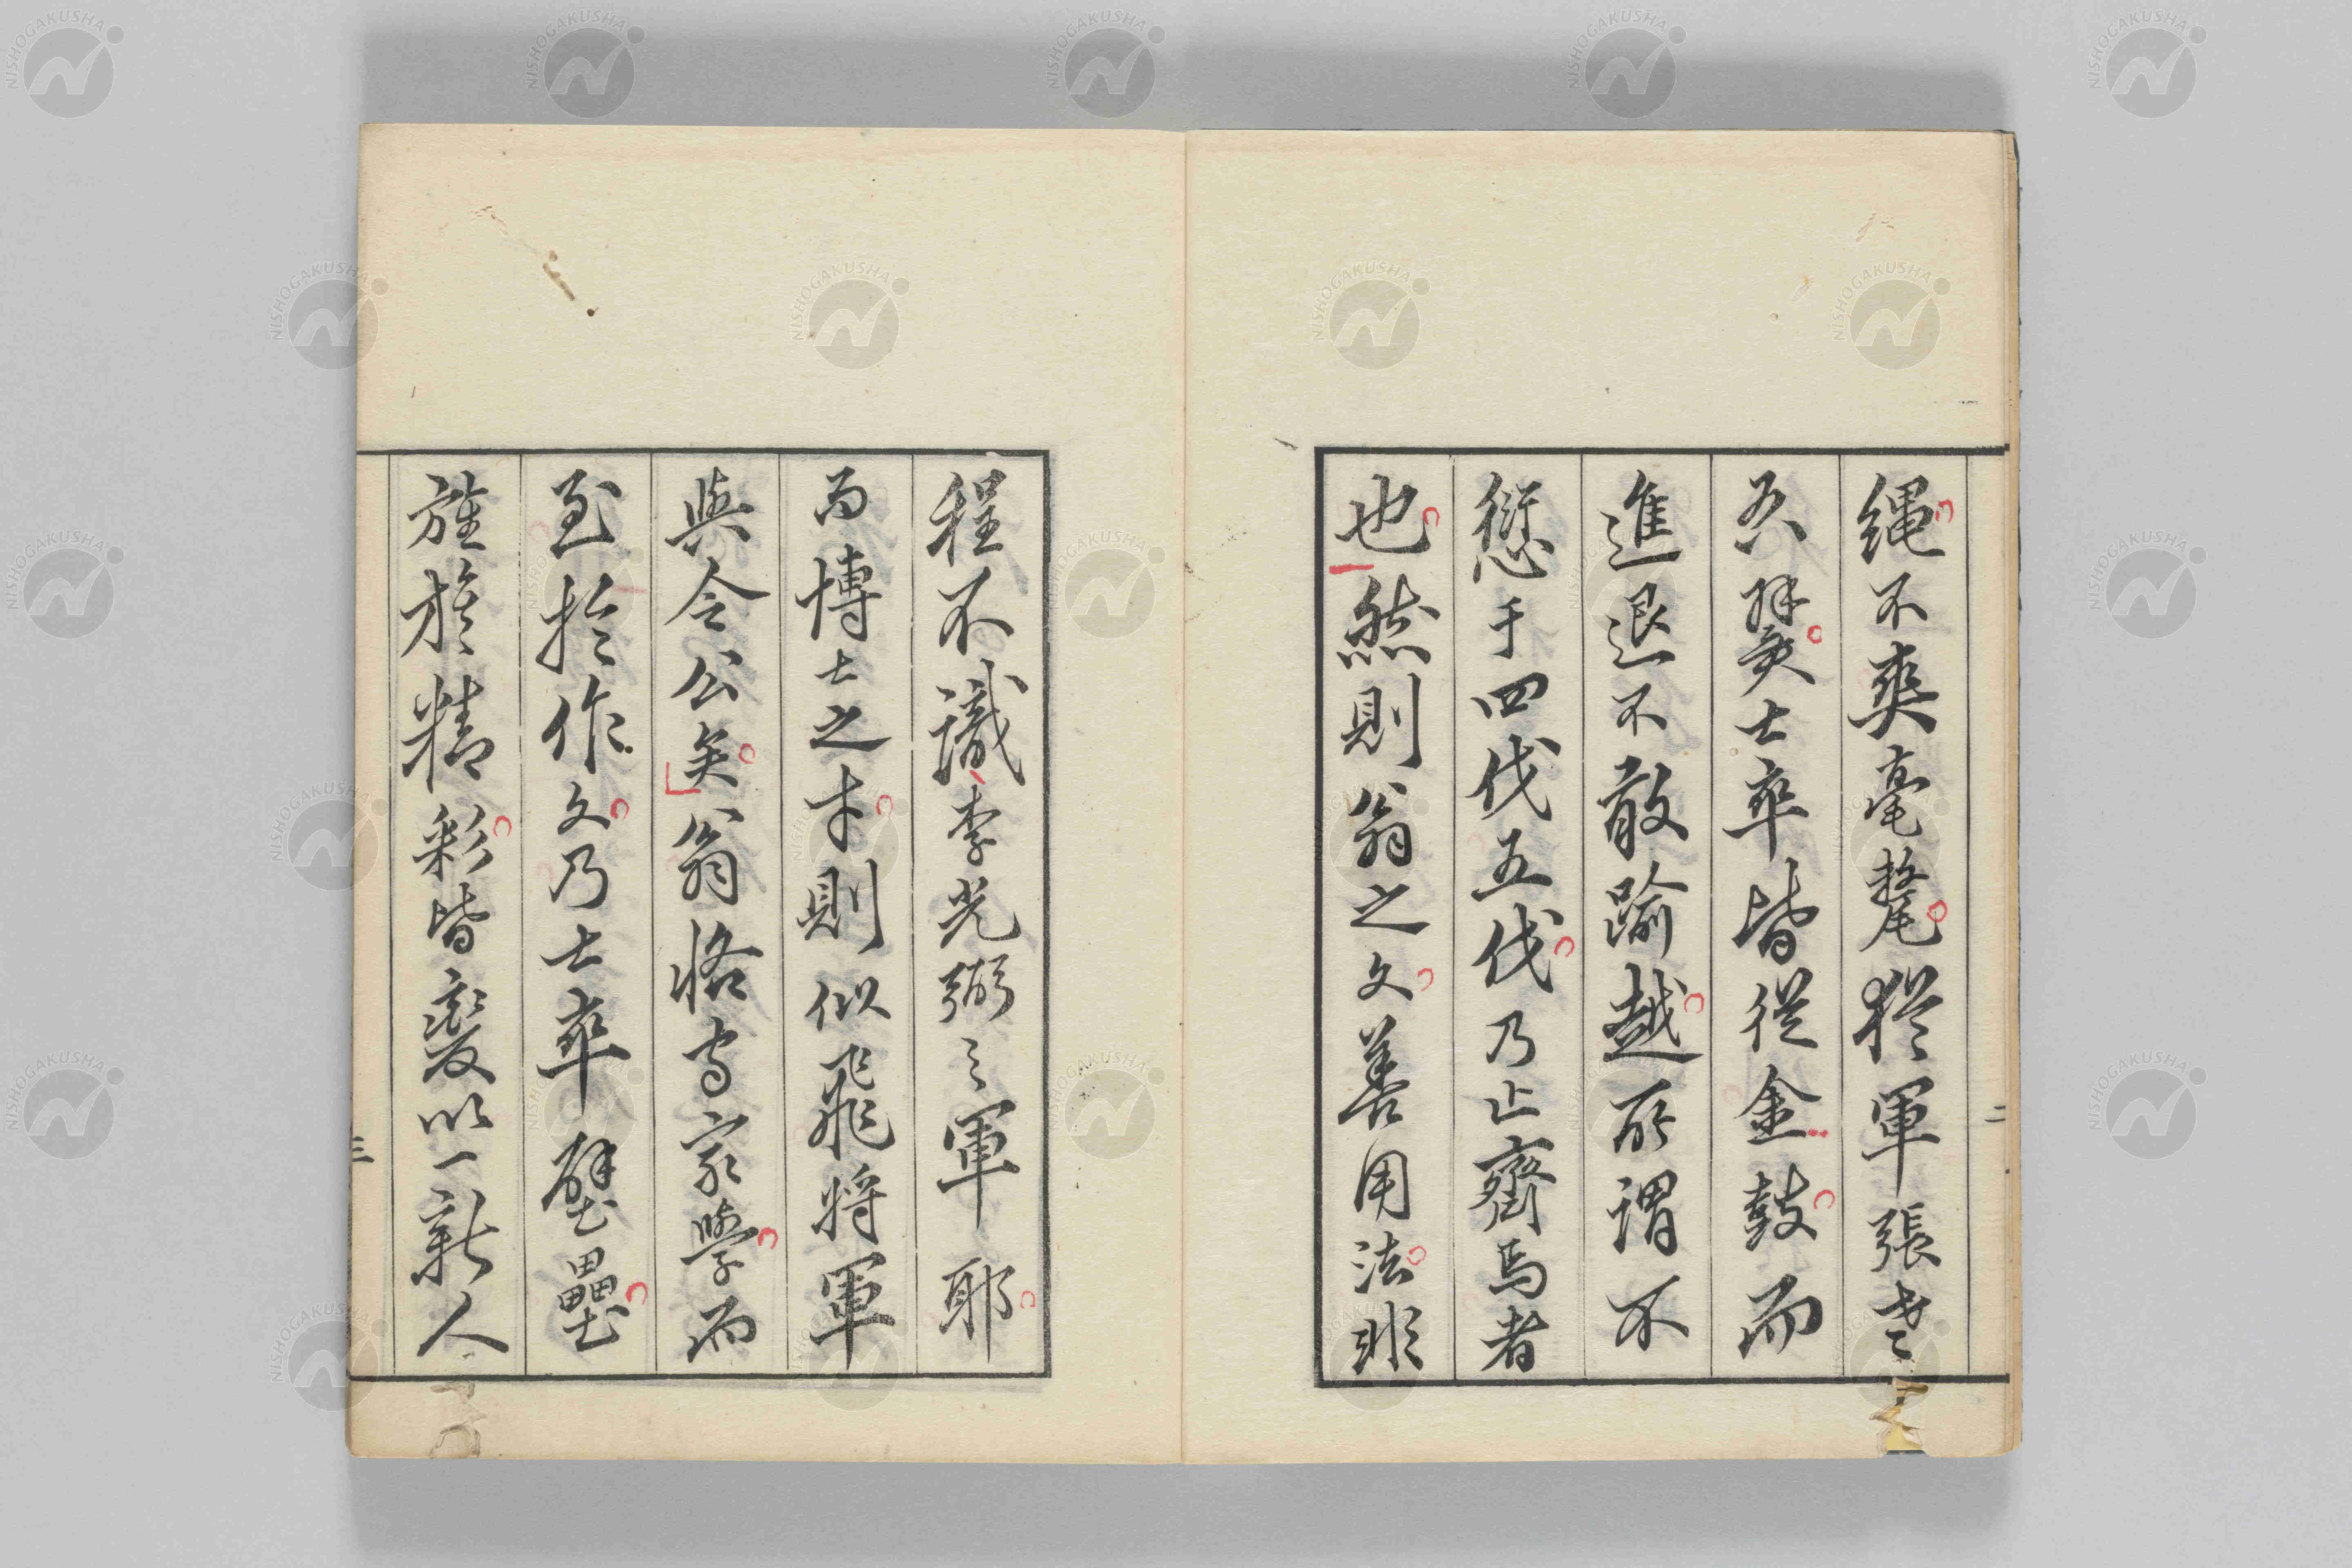 繩不爽毫氂猶軍張
士卒皆從金鼓而
進退不敢踰越所謂不
愆于四伐五伐乃止齊焉者
也然則翁之文善用法非
二
程不識李光弼之軍耶
而博士之才則似飛將軍
與令公矣翁恪守家學而
至於作文乃士卒壁壘
旌旗精彩皆變以一新人
三
NISHOGAKUSHA